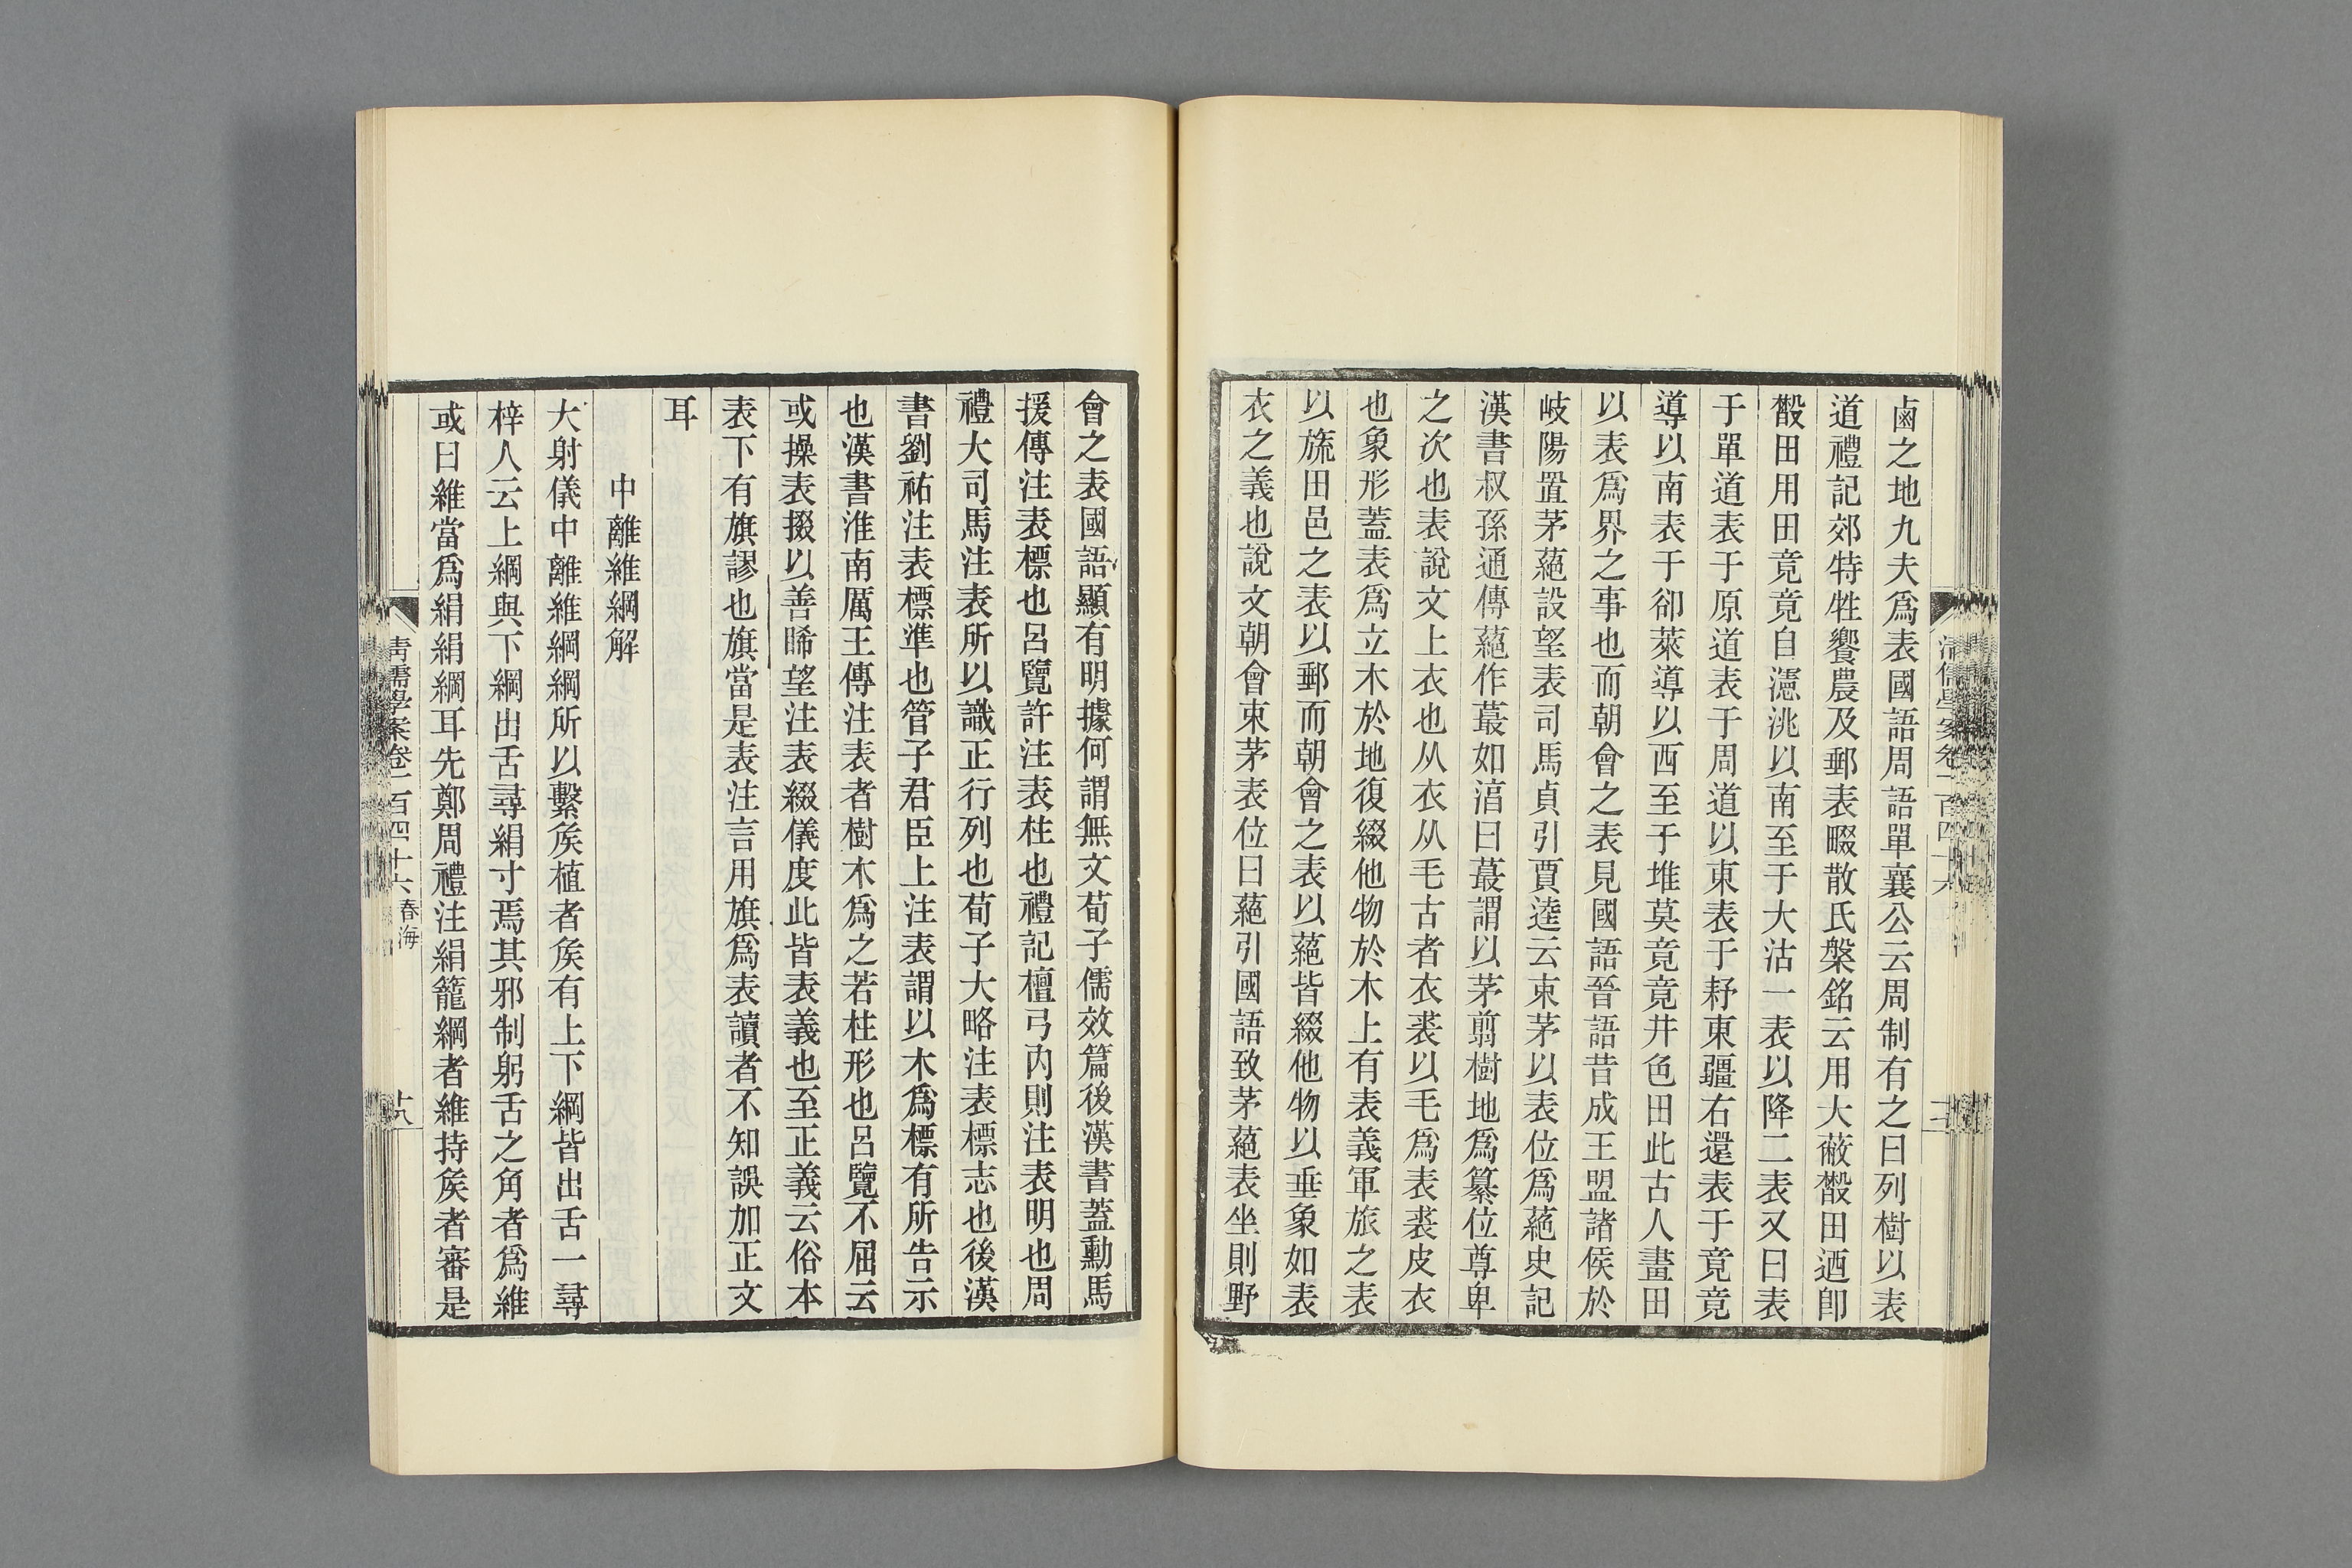 鹵之地九夫爲表國語周語單襄公云周制有之曰列樹以表
道禮記郊特牲饗農及郵表畷散氏槃銘云用大蔽㪔田迺卽
㪔田用田竟竟自瀗洮以南至于大沽一表以降二表又曰表
于單道表于原道表于周道以東表于𣂀東疆右還表于竟竟
導以南表于卻萊導以西至于堆莫竟竟井色田此古人畫田
以表爲界之事也而朝會之表見國語晉語昔成王盟諸侯於
岐陽置茅蕝設望表司馬貞引賈逵云束茅以表位爲蕝史記
漢書叔孫通傳蕝作蕞如湻曰蕞謂以茅翦樹地爲纂位尊卑
之次也表說文上衣也从衣从毛古者衣裘以毛爲表裘皮衣
也象形蓋表爲立木於地復綴他物於木上有表義軍旅之表
以旒田邑之表以郵而朝會之表以蕝皆綴他物以垂象如表
衣之義也說文朝會束茅表位曰蕝引國語致茅蕝表坐則野
會之表國語顯有明據何謂無文荀子儒效篇後漢書蓋勳馬
援傳注表標也呂覽許注表柱也禮記檀弓內則注表明也周
禮大司馬注表所以識正行列也荀子大略注表標志也後漢
書劉祐注表標準也管子君臣上注表謂以木爲標有所告示
也漢書淮南厲王傳注表者樹木爲之若柱形也呂覽不屈云
或操表掇以善睎望注表綴儀度此皆表義也至正義云俗本
表下有旗謬也旗當是表注言用旗爲表讀者不知誤加正文
耳
中離維綱解
大射儀中離維綱綱所以繫矦植者矦有上下綱皆出舌一尋
梓人云上綱與下綱出舌尋絹寸焉其邪制躬舌之角者爲維
或曰維當爲絹絹綱耳先鄭周禮注絹籠綱者維持矦者審是
清儒學案卷一百四十六 春海
十八